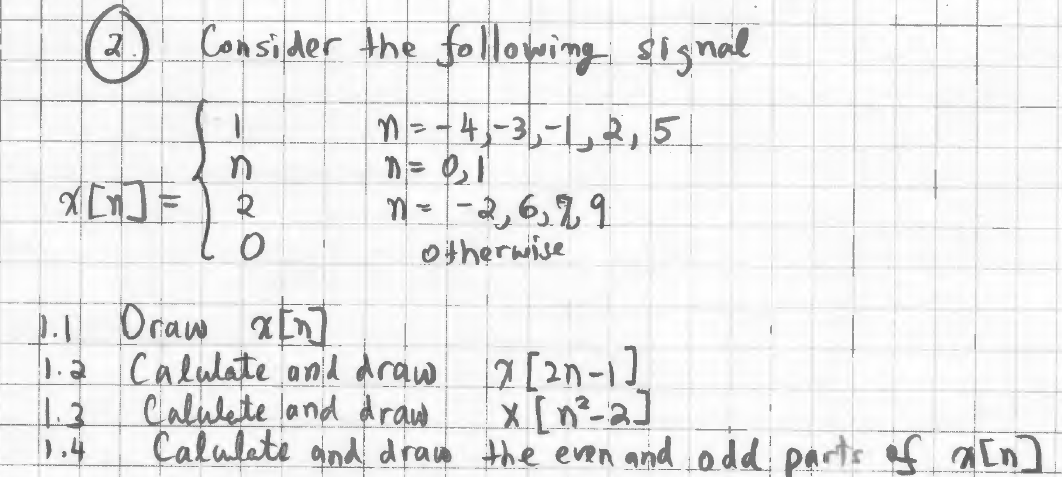 2. Consider the following signal
1 n = -4, -3, -1, 2, 5
n n = 0, 1
x[n] = 2 n = -2, 6, 7, 9
0 otherwise
1.1 Draw x[n]
1.2 Calulate and draw x[2n-1]
1.3 Calulete and draw x[n²-2]
1.4 Calculate and draw the even and odd parts of x[n]